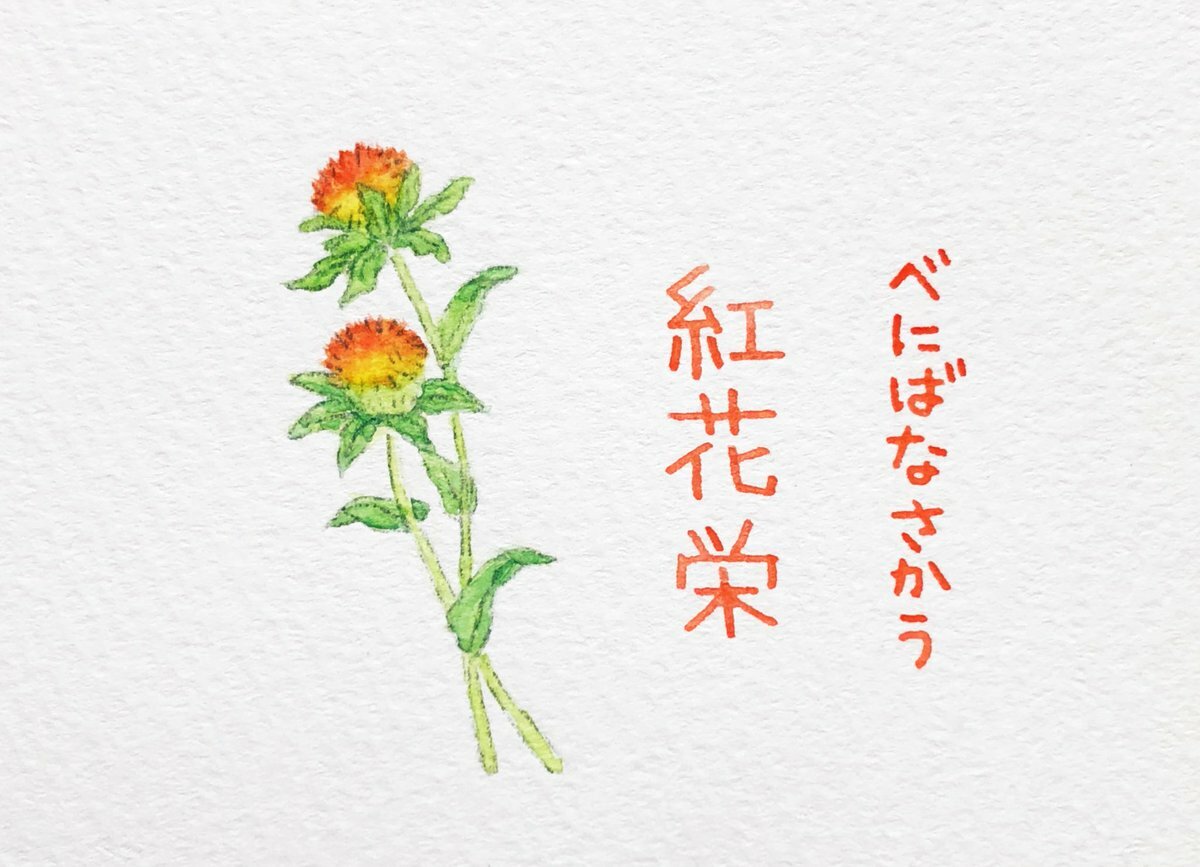 べにばなさかう
紅花栄